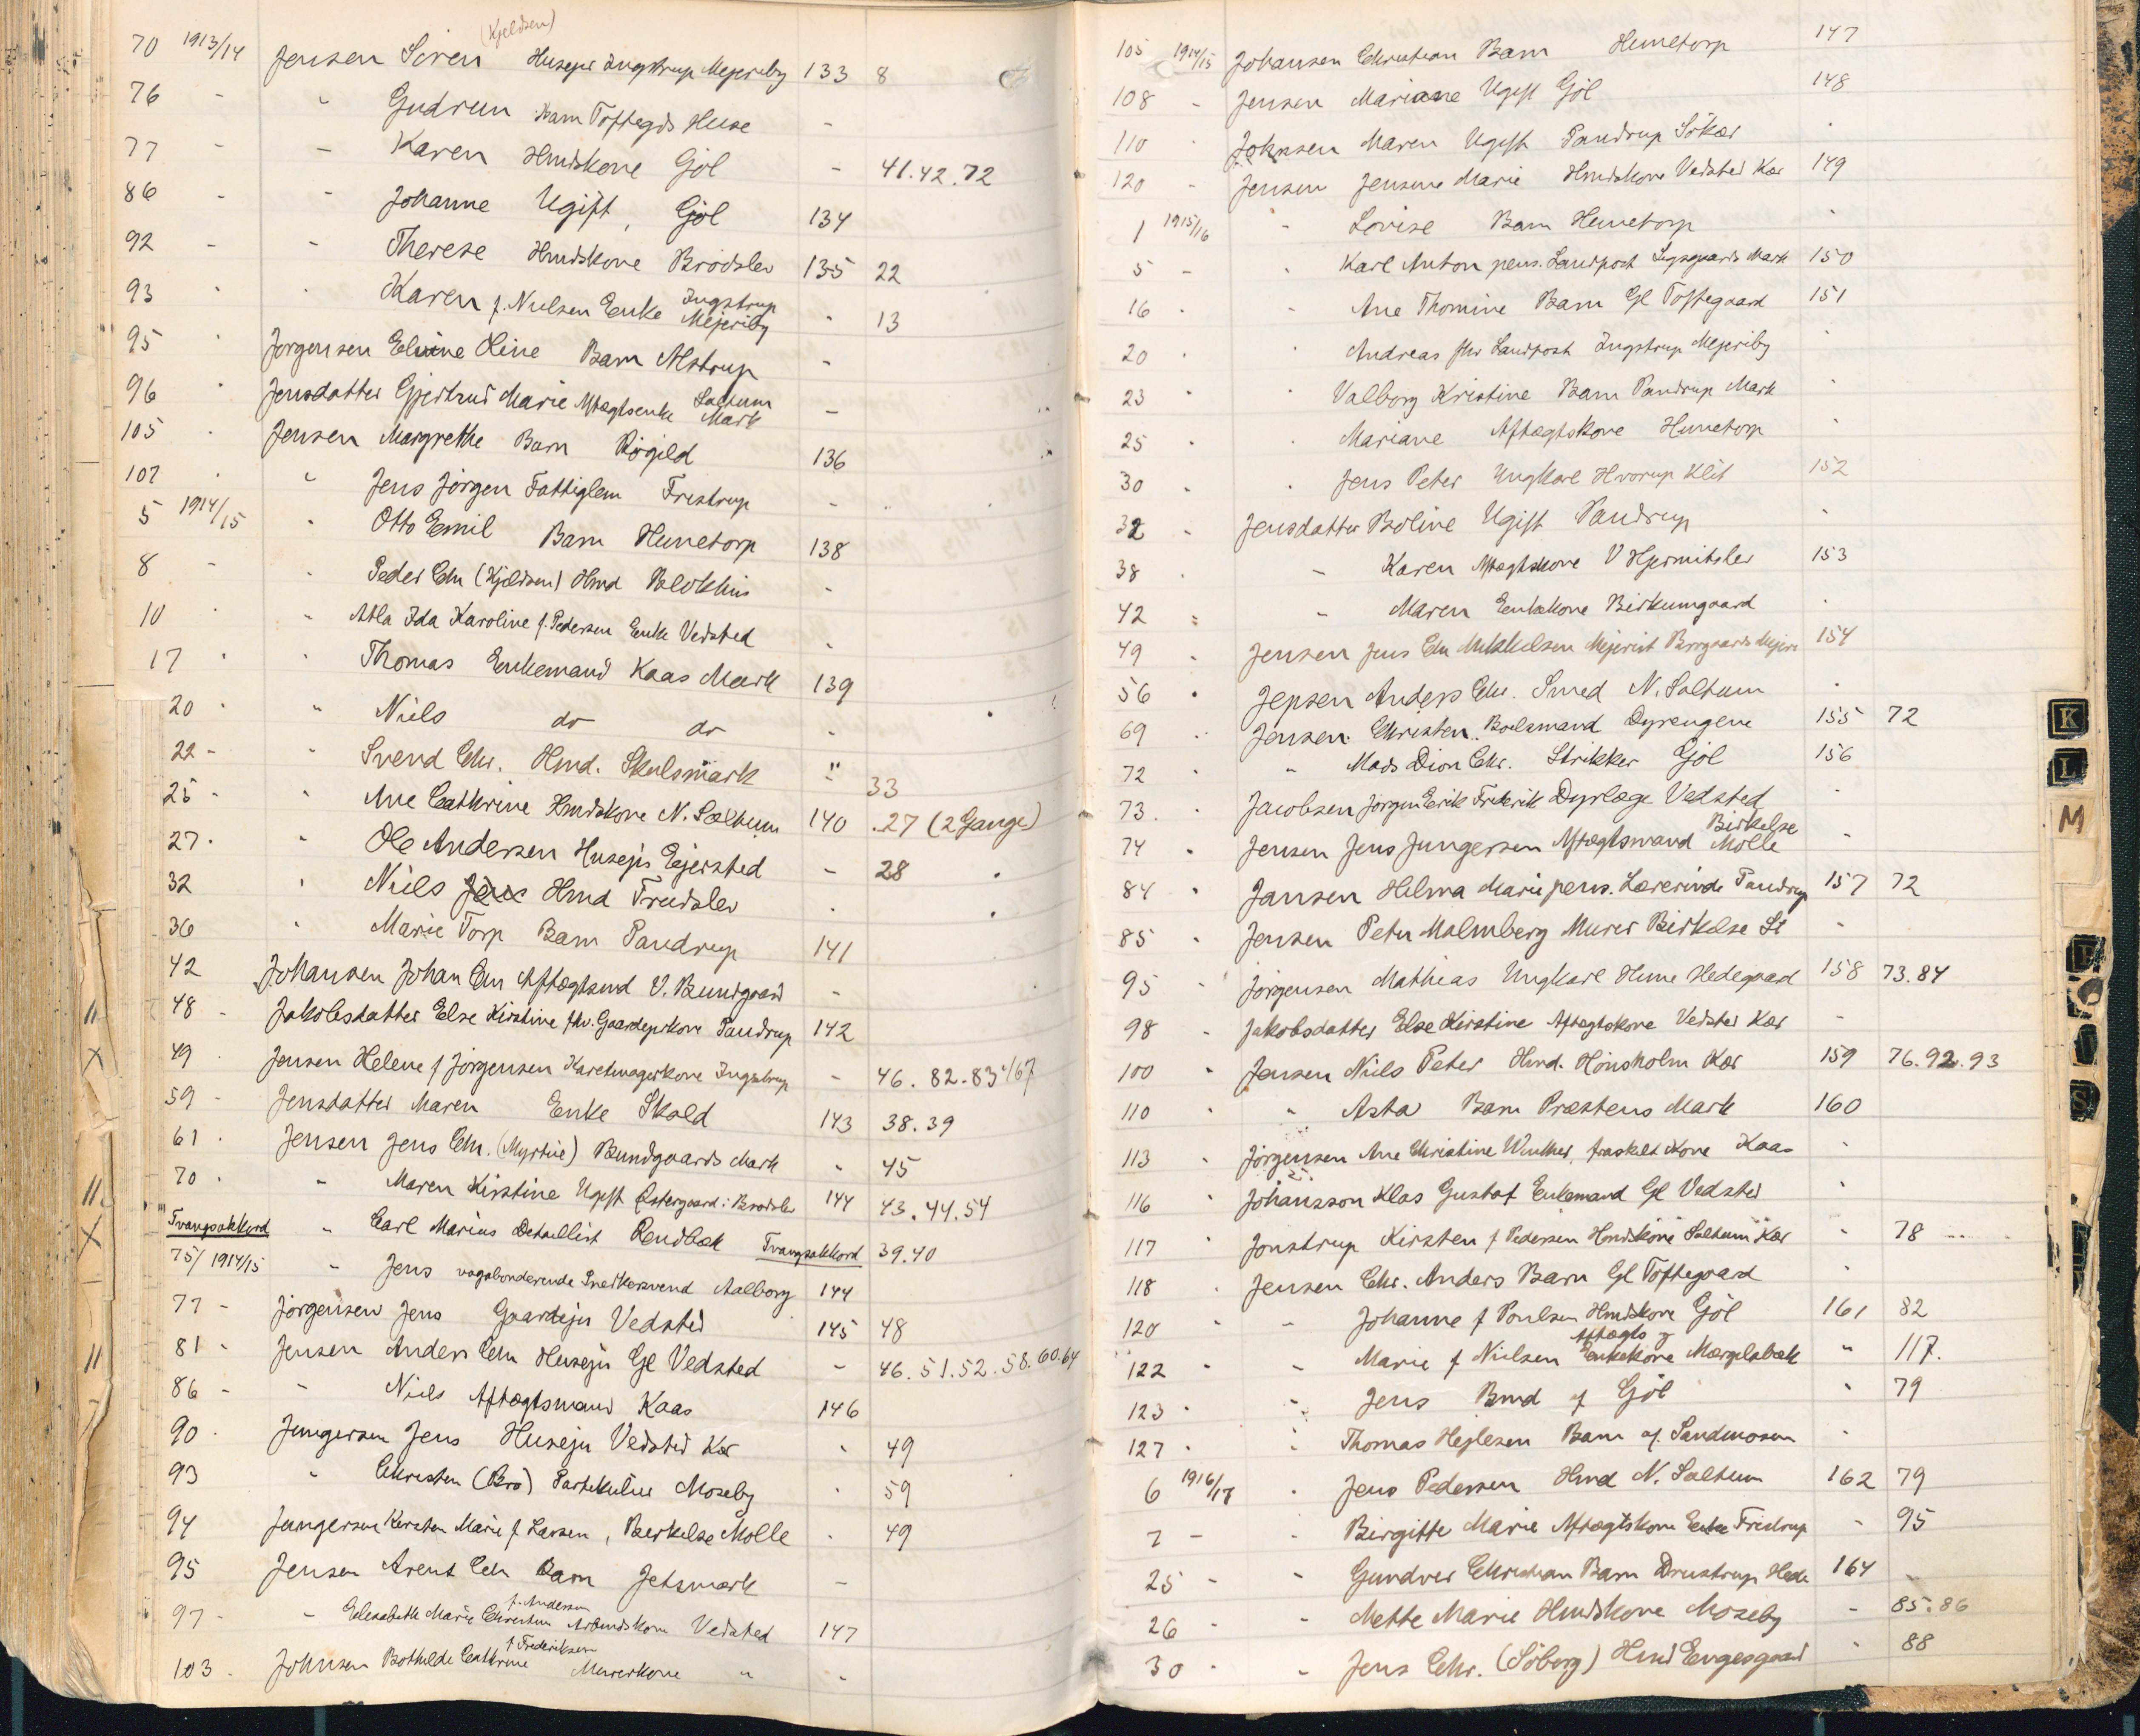 (Kjeldsen)
70 1913/14 Jensen Sören Husejer Ingstrup Mejeriby 133 8
76 - " Gudrun Barn Toftegds Huse -
77 - - Karen Hmdskone Gjöl - 41.42.72
86 - " Johanne Ugift, Gjöl 134
92 - - Therese Hmdskone Brödslev 135 22
93 " " Karen f. Nielsen Enke Ingstrup Mejeriby " 13
95 " Jørgensen Elvine Oline Barn Alstrup -
96 " Jensdatter Gjertrud Marie Aftægtsenke Saltum Mark -
105 . Jensen Margrethe Barn Rögild 136
107 . " Jens Jörgen Fattiglem Fristrup -
5 1914/15 " Otto Emil Barn Hunetorp 138
8 - " Peder Chr (Kjeldsen) Hmd Blokhus -
10 " " Atla Ida Karoline f. Pedersen Enke Vedsted .
17 " " Thomas Enkemand Kaas Mark 139
20 " " Niels do do -
22 - " Svend Chr. Hmd. Skulsmark " 33
25 - " Ane Cathrine Hmdskone N. Saltum 140 .27 (2 Gange)
27. " Ole Andersen Husejer Ejersted - 28
32 " Niels Hmd Trudslev .
36 " Marie Torp Barn Pandrup 141
42 Johansen Johan Chr Aftægtsmd V. Bundgaard -
48 - Jakobsdatter Else Kirstine fhv. Gaardejerkone Pandrup 142
49 Jensen Helene f Jörgensen Karetmagerkone Ingstrup - 46.82.83 167
59 - Jensdatter Maren Enke Skold 143 38.39
61 . Jensen Jens Chr. (Myrtue) Bundgaards Mark " 45
70 . " Maren Kirstine Ugift Østergaard i Brødslev 144 43.44.54
Tvangsakkord " Carl Marius Detaillist Rendbæk Tvangsakkord 39.40
75/1914/15 " Jens vagabonderende Snedkersvend Aalborg 144
77 - Jörgensen Jens Gaardejer Vedsted 145 48
81 - Jensen Anders Chr Husejer Gl Vedsted - 46.51.52.58.60.64
86 - " Niels Aftægtsmand Kaas 146
90 . Jungersen Jens Husejer Vedsted Kær . 49
93 " Christen (Bro) Partikulier Moseby . 59
94 Jungersen Kirsten Marie f Larsen, Birkelse Mölle . 49
95 Jensen Arent Chr Barn Jetsmark -
97 - " Elisabeth Marie Christine f. Andersen Arbmdskone Vedsted 147
103 - Johnsen Bothilde Cathrine f Frederiksen Murerkone " -
105 1914/15 Johansen Christian Barn Hunetorp 147
108 - Jensen Mariane Ugift Gjöl 148
110 " Johnsen Maren Ugift Pandrup Sökær "
120 - Jensen Jensine Marie Hmdskone Vedsted Kær 149
1 1915/16 " Lovise Barn Hunetorp "
5 - " Karl Anton pens. Landpost Segsgaards Mark 150
16 . " Ane Thomine Barn Gl Toftegaard 151
20 " " Andreas fhv Landpost Ingstrup Mejeriby "
23 " " Valborg Kristine Barn Pandrup Mark "
25 " " Mariane Aftægtskone Hunetorp "
30 " " Jens Peter Ungkarl Hvorup Klit 152
32 - Jensdatter Boline Ugift Pandrup "
38 . " Karen Aftægtskone V Hjermitslev 153
42 = " Maren Enkekone Birkumgaard .
49 . Jensen Jens Chr Mikkelsen Mejerist Borgaards Mejeri 154
56 . Jepsen Anders Chr. Smed N. Saltum .
69 .. Jensen Christen Boelsmand Dyrengene 155 72
72 " " Mads Dion Chr. Strikker Gjöl 156
73 . Jacobsen Jörgen Erik Frederik Dyrlæge Vedsted "
74 " Jensen Jens Jungersen Aftægtsmand Birkelse Mölle -
84 " Jansen Helma Marie pens. Lærerinde Pandrup 157 72
85 " Jensen Peter Malmberg Murer Birkelse St "
95 " Jörgensen Mathias Ungkarl Hune Hedegaard 158 73.84
98 " Jakobsdatter Else Kirstine Aftægtskone Vedsted Kær -
100 " Jensen Niels Peter Hmd. Hönsholm Kær 159 76.92.93
110 " " Asta Barn Præstens Mark 160
113 " Jörgensen Ane Christine Winther, fraskilt Kone Kaas "
116 " Johansson Klas Gustaf Enkemand Gl Vedsted "
117 " Jonstrup Kirsten f Pedersen Hmdskone Saltum Kær " 78
118 " Jensen Chr. Anders Barn Gl Toftegaard "
120 " " Johanne f Poulsen Hmdskone Gjöl 161 82
122 " " Marie f Nielsen Aftægts Enkekone Mærgelsbæk " 117.
123 . " Jens Bmd af Gjöl " 79
127 . " Thomas Hejlesen Barn af Sandmosen "
6 1916/17 . Jens Pedersen Hmd N. Saltum 162 79
7 - " Birgitte Marie Aftægtskone Enke Fristrup - 95
25 - " Gundver Christian Barn Drustrup Hede 164
26 - " Mette Marie Hmdskone Moseby - 85.86
30 " " Jens Chr. (Söborg) Hmd Engesgaard " 88
K
L
M
P
Q
R
S